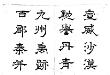 宣威沙漠
馳譽丹青
九州禹跡
百郡秦并